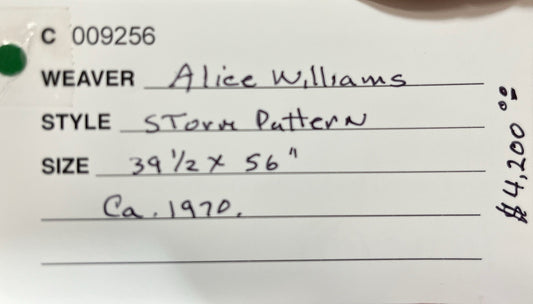 C 009256
WEAVER Alice Williams
STYLE Storm Pattern
SIZE 39 1/2 x 56"
Ca. 1970.
$4,200.00